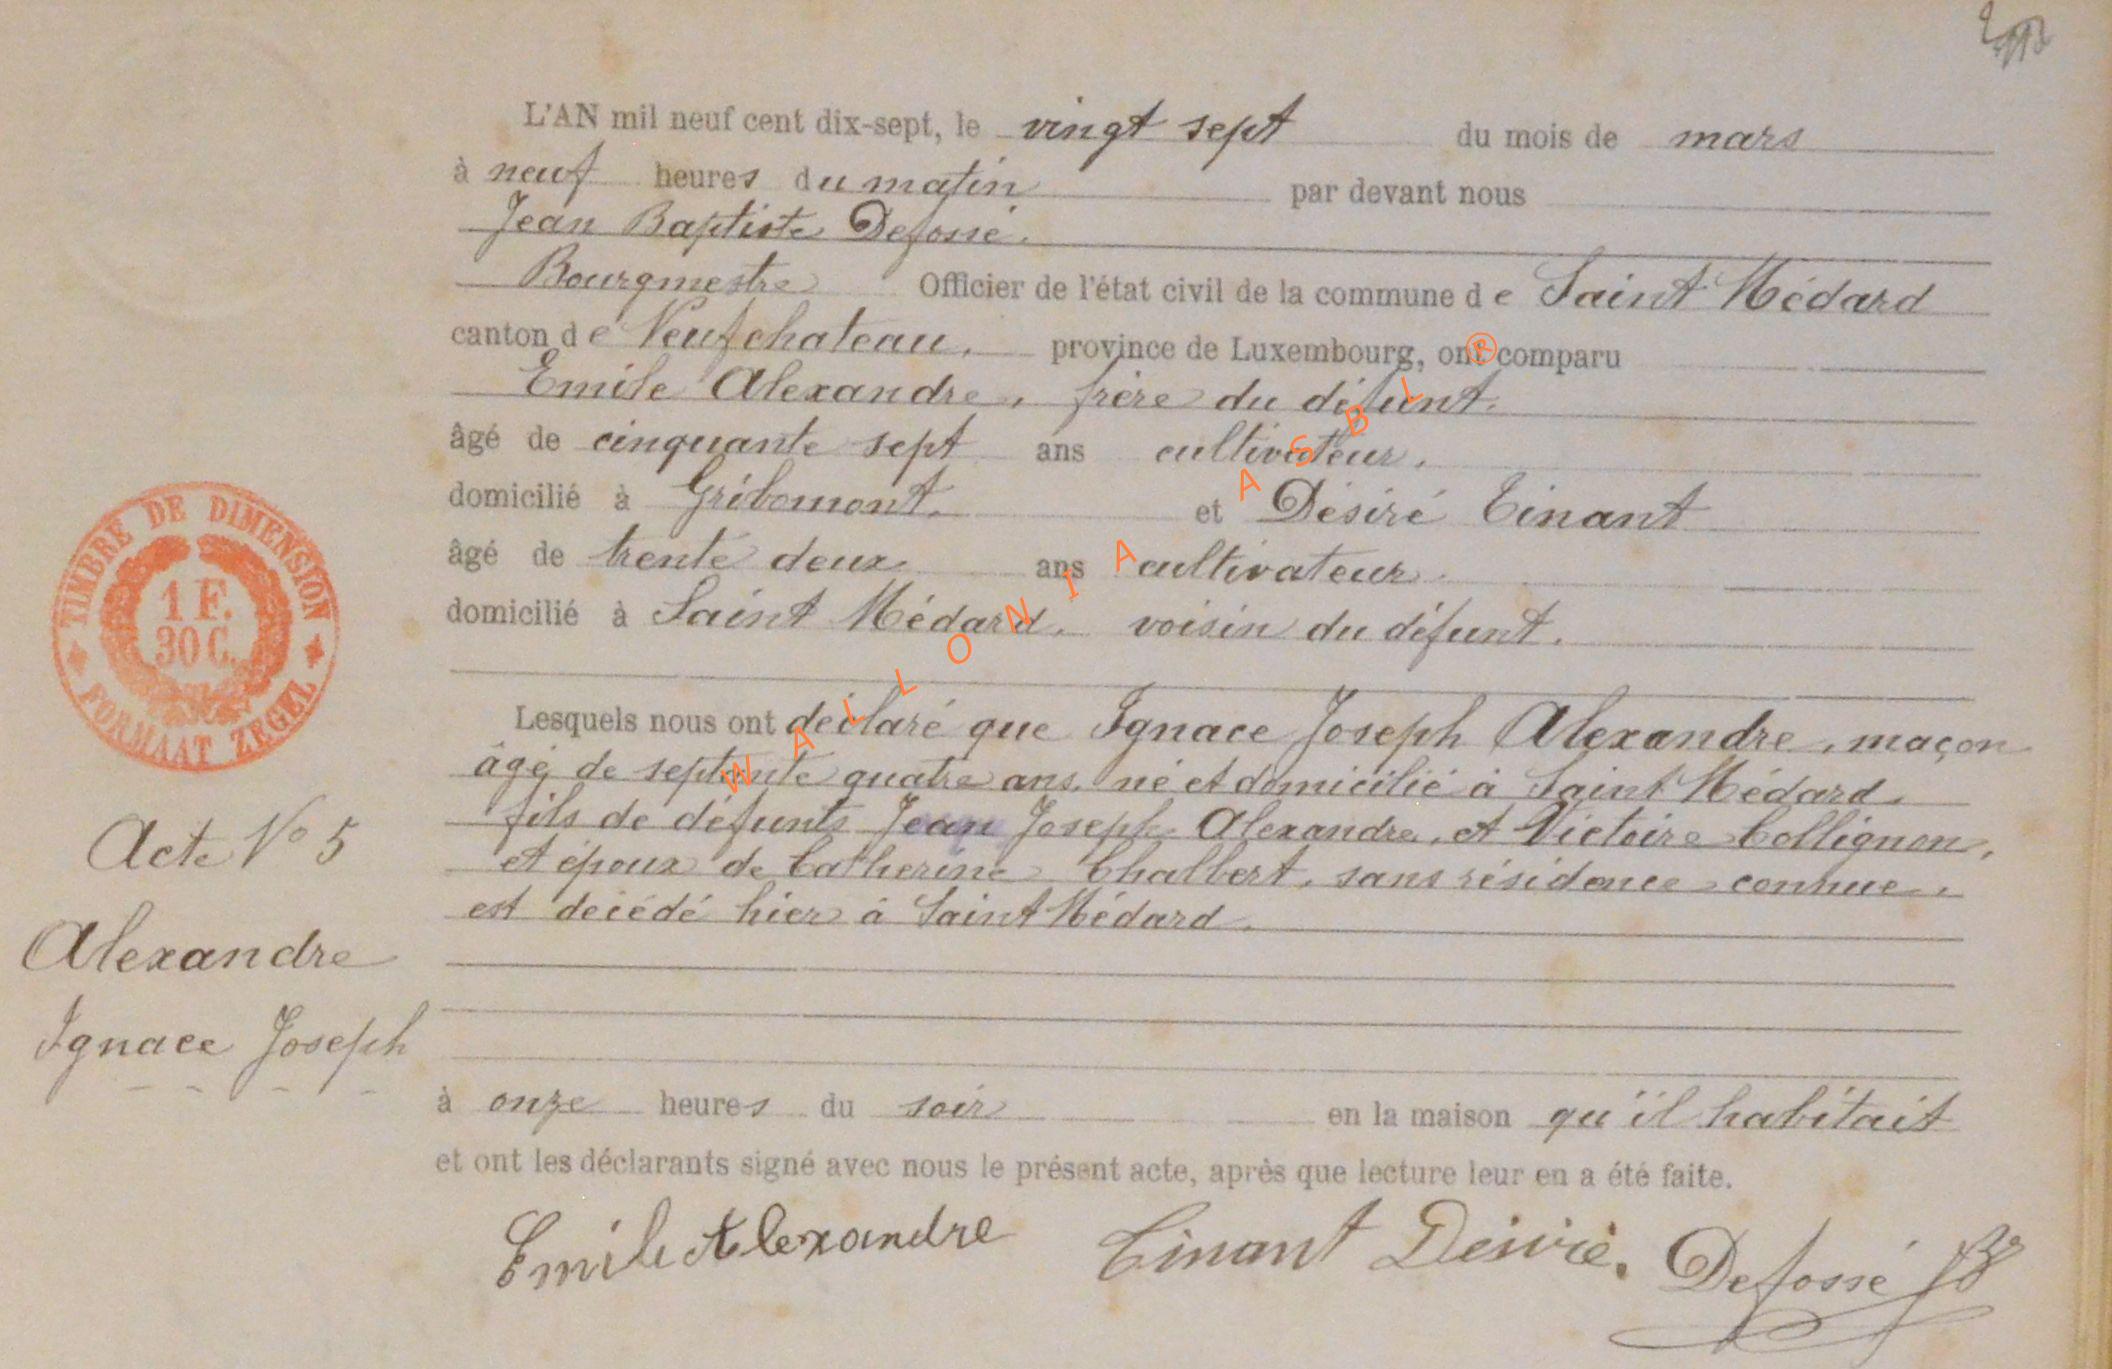 L'AN mil neuf cent dix-sept, le vingt sept du mois de mars
à neuf heures du matin par devant nous
Jean Baptiste Defossé.
Bourgmestre Officier de l'état civil de la commune de Saint Médard
canton de Neufchateau, province de Luxembourg, ont comparu
Emile Alexandre, frère du défunt.
âgé de cinquante sept ans cultivateur.
domicilié à Gribomont. et Désiré Tinant
âgé de trente deux ans cultivateur.
domicilié à Saint Médard. voisin du défunt.
Lesquels nous ont déclaré que Ignace Joseph Alexandre, maçon
âgé de septante quatre ans, né et domicilié à Saint Médard,
fils de défunts Jean Joseph Alexandre, et Victoire Collignon,
et époux de Catherine Chalbert, sans résidence connue,
est décédé hier à Saint Médard.
à onze heures du soir en la maison qu'il habitait
et ont les déclarants signé avec nous le présent acte, après que lecture leur en a été faite.
Emile Alexandre Tinant Désiré. Defossé JB
TIMBRE DE DIMENSION
1 F.
30 C.
FORMAAT ZEGEL
Acte N° 5
Alexandre
Ignace Joseph
WALLONIA ASBL ®